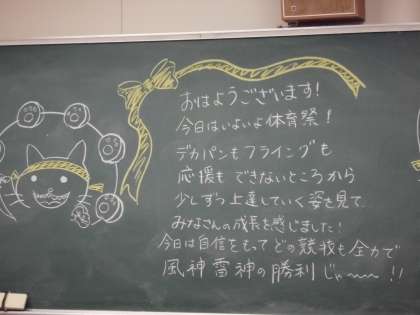 おはようございます!
今日はいよいよ体育祭!
デカパンもフライングも
応援も できないところから
少しずつ上達していく姿を見て
みなさんの成長を感じました!
今日は自信をもって どの競技も全力で
風神雷神の勝利 じゃ〜〜!!